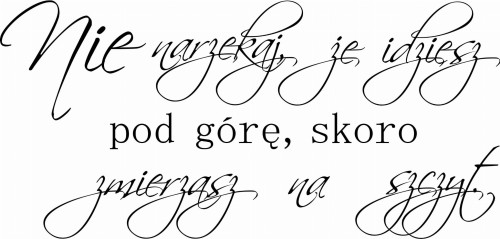 Nie narzekaj, że idziesz
pod górę, skoro
zmierzasz na szczyt.